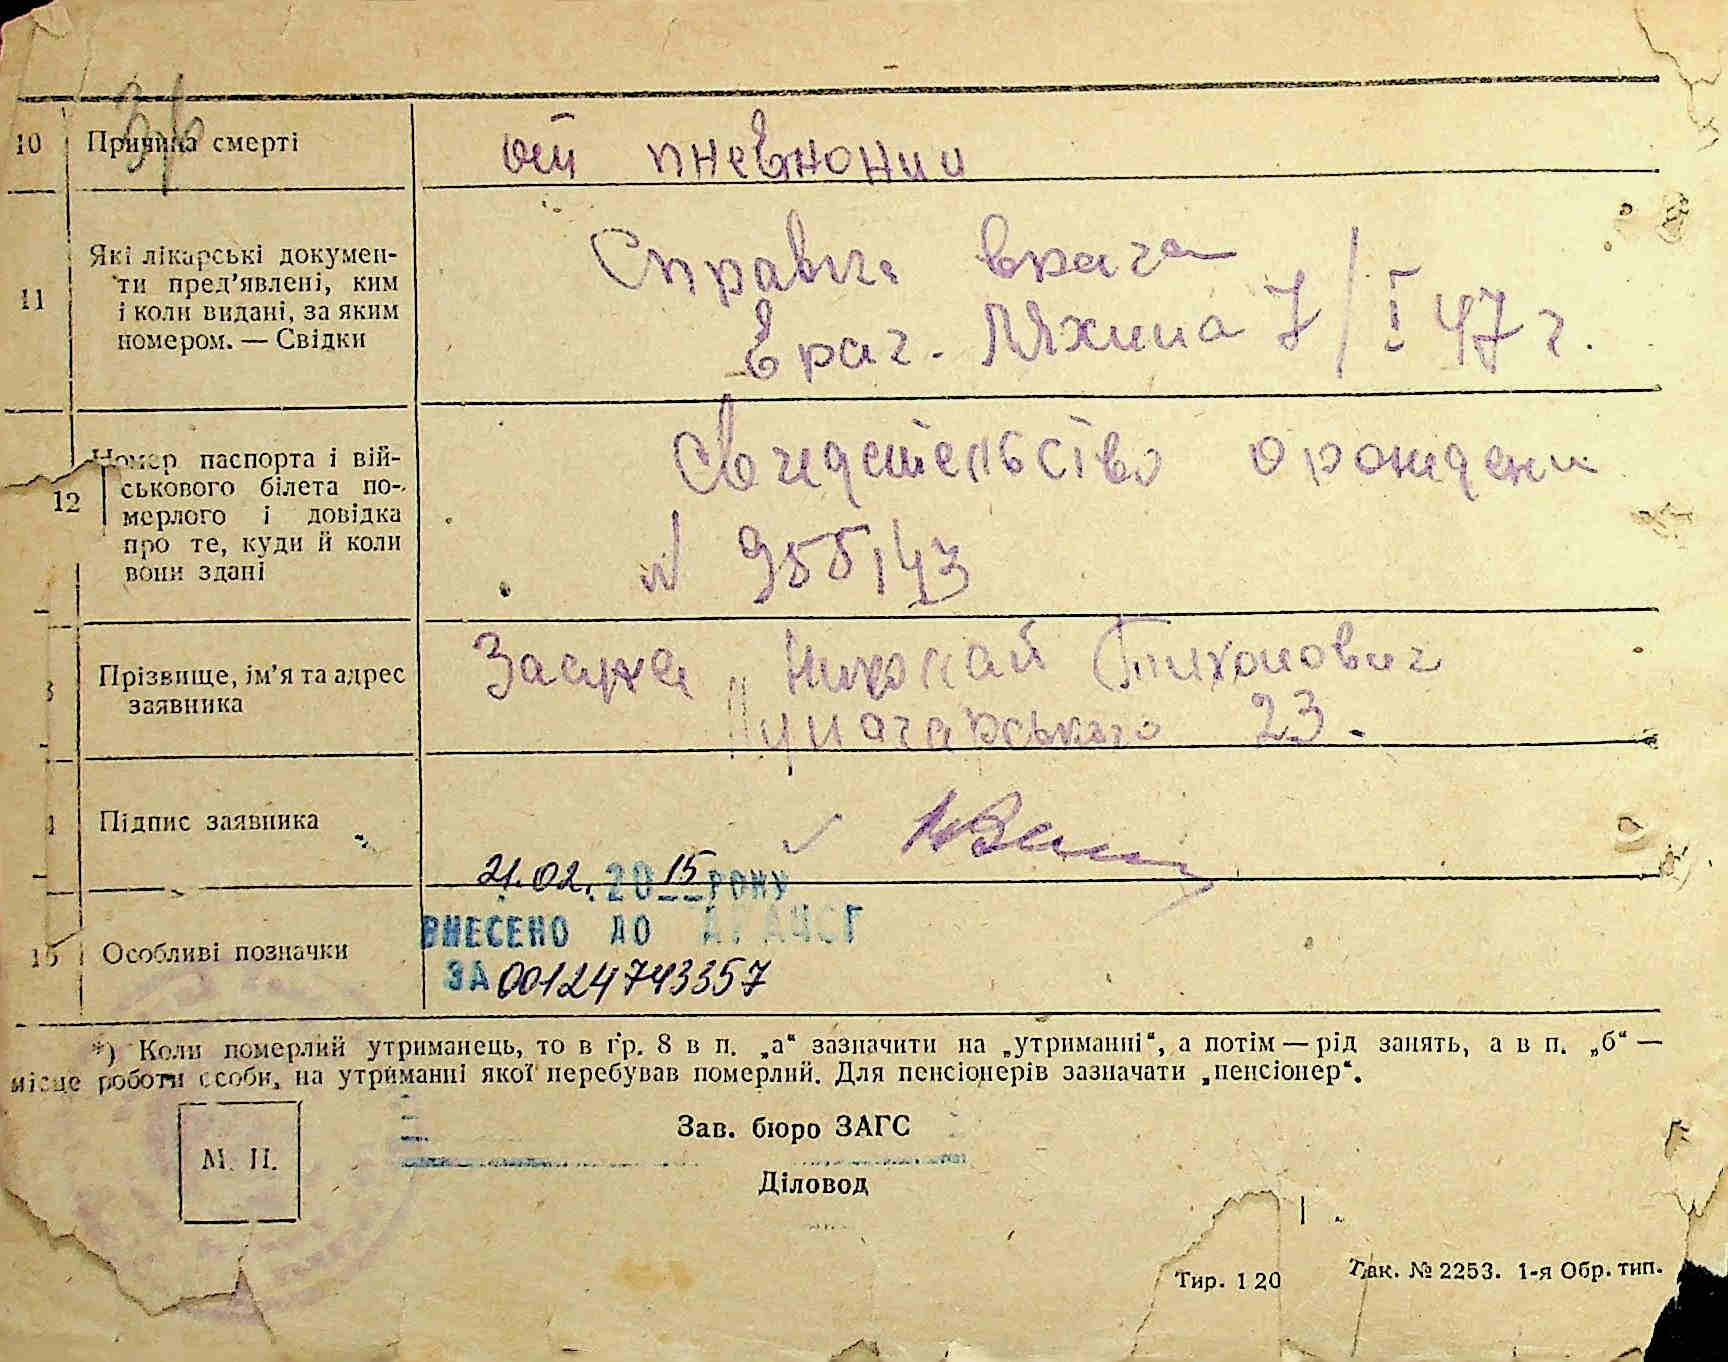 10 Причина смерті
от пневмонии
11 Які лікарські докумен-
ти пред'явлені, ким
і коли видані, за яким
номером. — Свідки
Справка врача
Врач. Мяхина 7/I 47 г.
12 Номер паспорта і вій-
ськового білета по-
мерлого і довідка
про те, куди й коли
вони здані
Свидетельство о рождени
N 955143
Прізвище, ім'я та адрес
заявника
Засуха Николай Тихонович
Луначарського 23.
Підпис заявника
21.02. 2015 РОКУ
ВНЕСЕНО ДО ДРАЦСГ
ЗА 00124743357
15 Особливі позначки
*) Коли померлий утриманець, то в гр. 8 в п. „а“ зазначити на „утриманні“, а потім — рід занять, а в п. „б“ —
місце роботи особи, на утриманні якої перебував померлий. Для пенсіонерів зазначати „пенсіонер“.
М. П.
Зав. бюро ЗАГС
Діловод
Тир. 120
Зак. № 2253. 1-я Обр. тип.